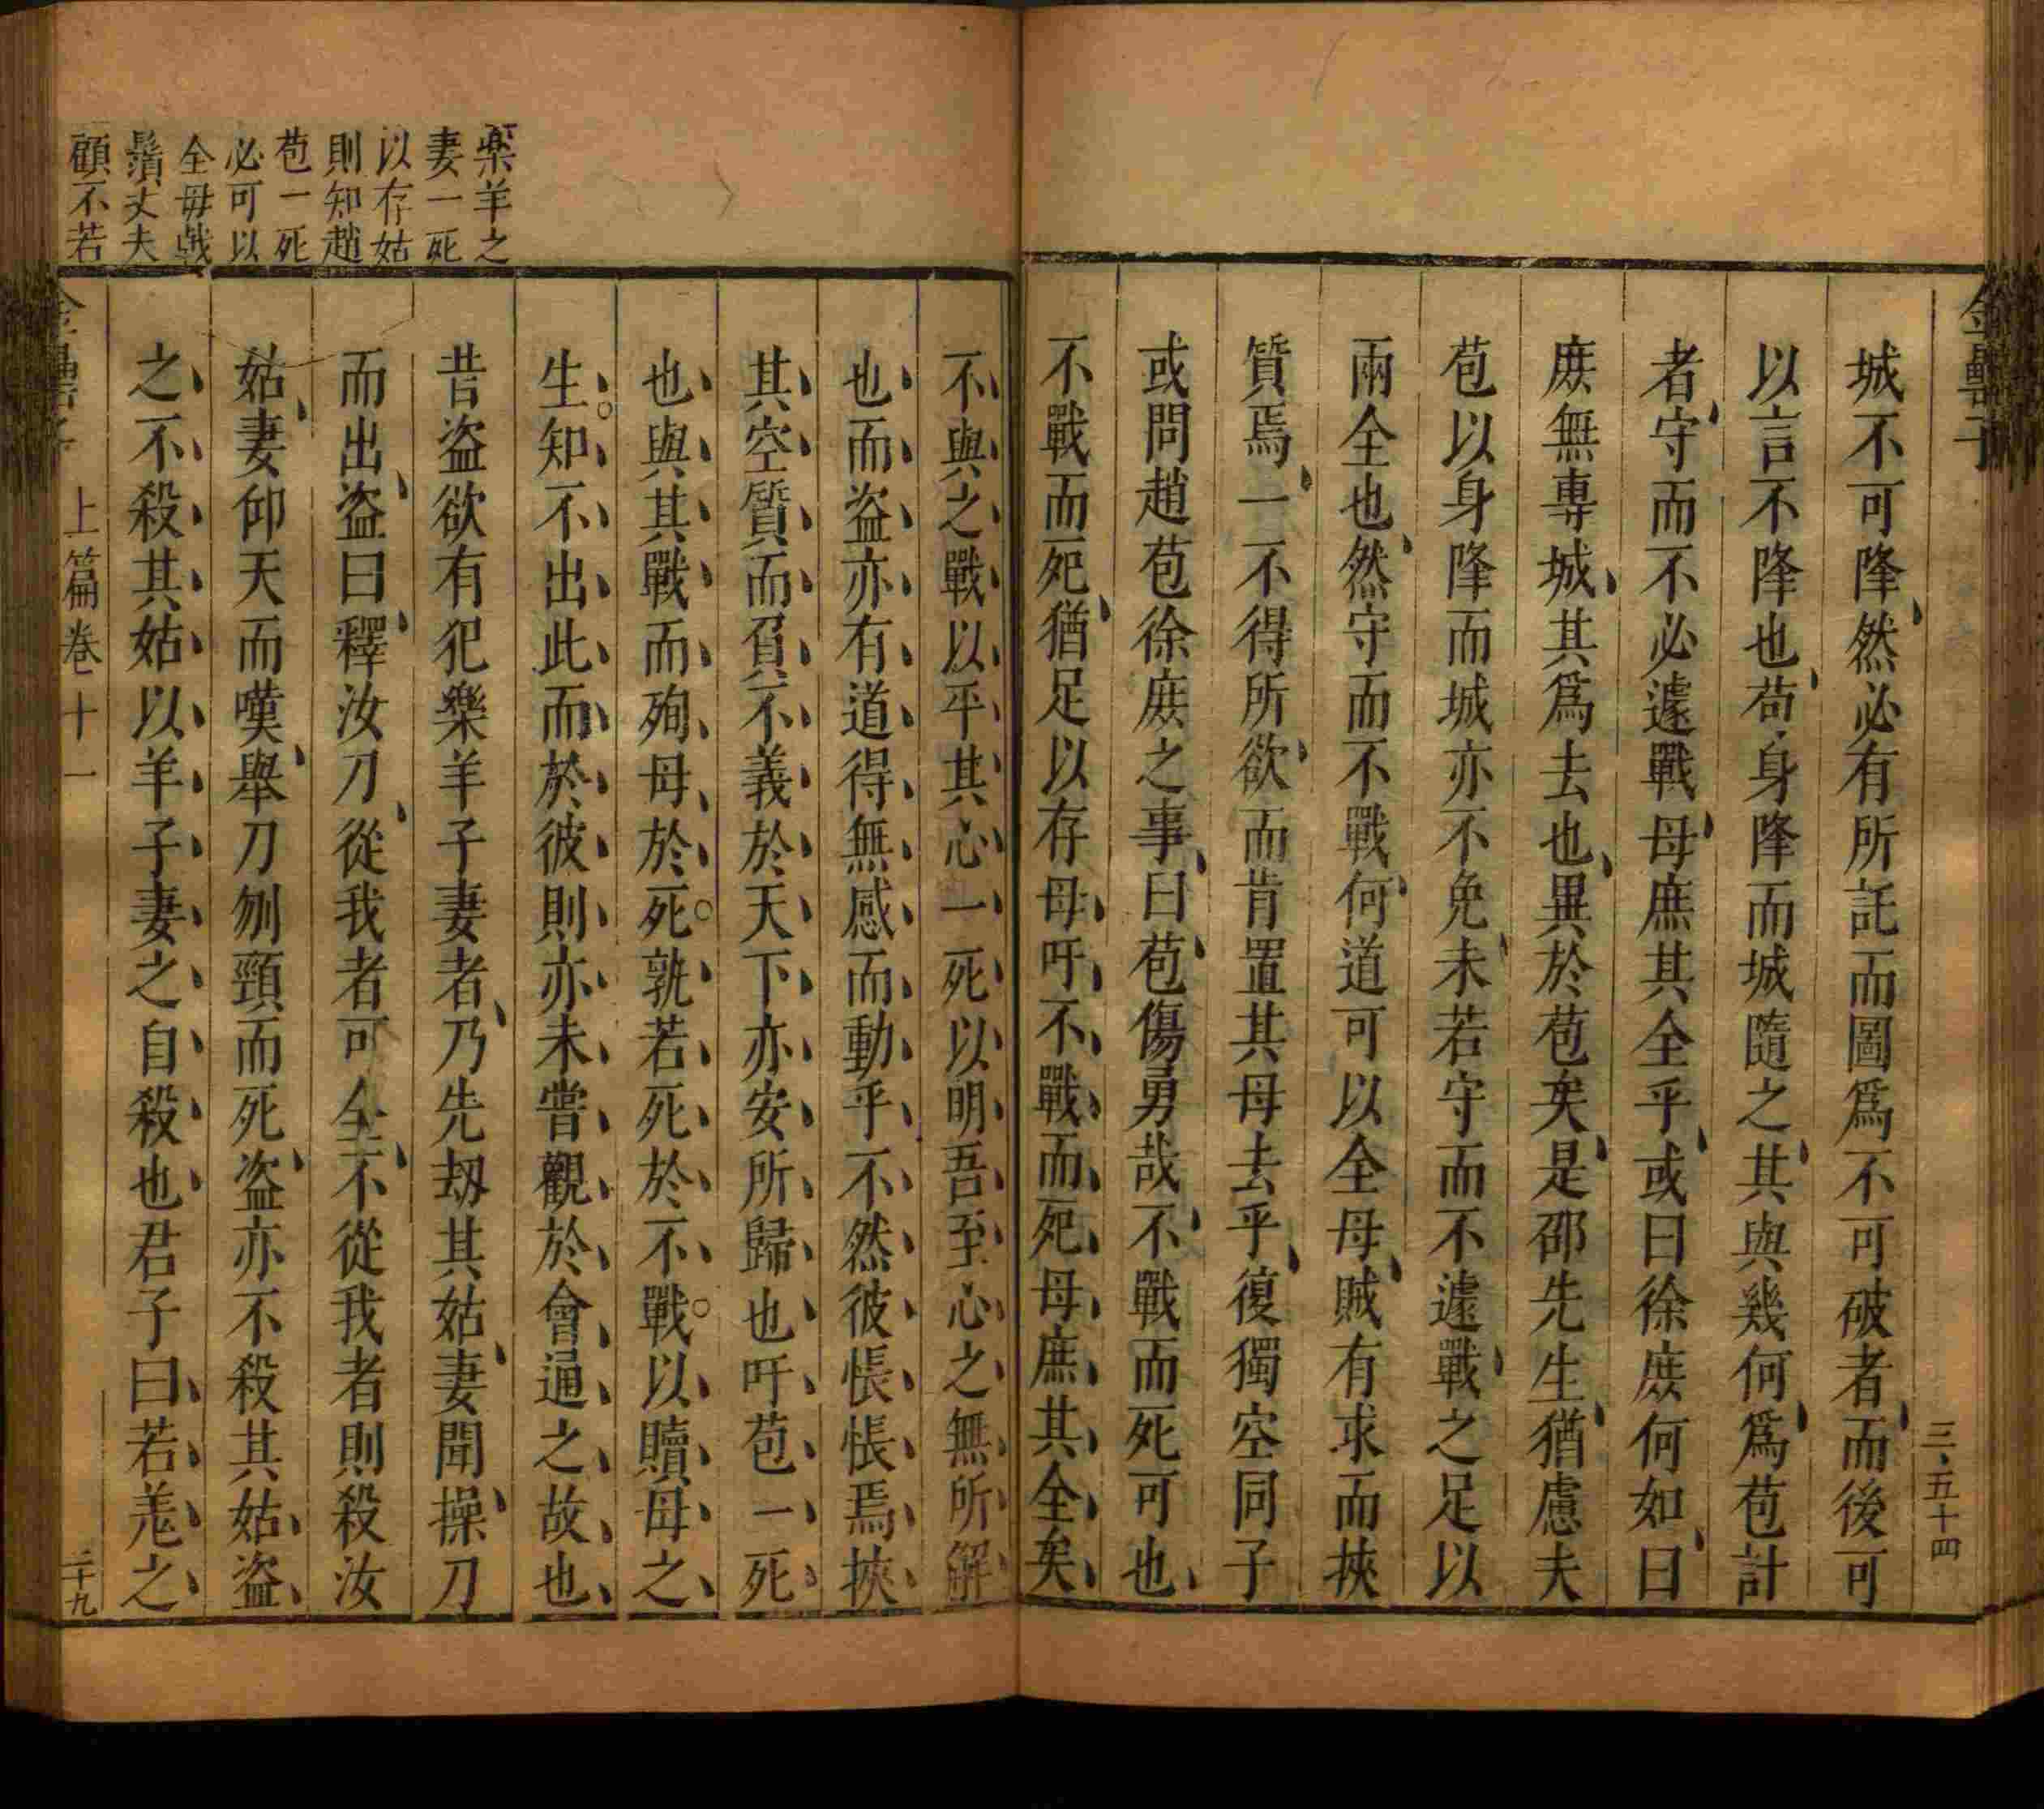 金罍子
三、五十四
城不可降然必有所託而圖爲不可破者而後可
以言不降也苟身降而城隨之其與幾何爲苞計
者守而不必遽戰母庶其全乎或曰徐庶何如曰
庶無專城其爲去也異於苞矣是邵先生猶慮夫
苞以身降而城亦不免未若守而不遽戰之足以
兩全也然守而不戰何道可以全母賊有求而挾
質焉一不得所欲而肯置其母去乎復獨空同子
或問趙苞徐庶之事曰苞傷勇哉不戰而死可也
不戰而死猶足以存母吁不戰而死母庶其全矣
不與之戰以平其心一死以明吾至心之無所解
也而盜亦有道得無感而動乎不然彼悵悵焉挾
其空質而負不義於天下亦安所歸也吁苞一死
也與其戰而殉母於死孰若死於不戰以贖母之
生知不出此而於彼則亦未嘗觀於會通之故也
昔盜欲有犯樂羊子妻者乃先劫其姑妻聞操刀
而出盜曰釋汝刀從我者可全不從我者則殺汝
姑妻仰天而嘆舉刀刎頸而死盜亦不殺其姑盜
之不殺其姑以羊子妻之自殺也君子曰若羗之
樂羊之
妻一死
以存姑
則知趙
苞一死
必可以
全母戲
鬚丈夫
顧不若
金罍子
上篇卷十一
二十九